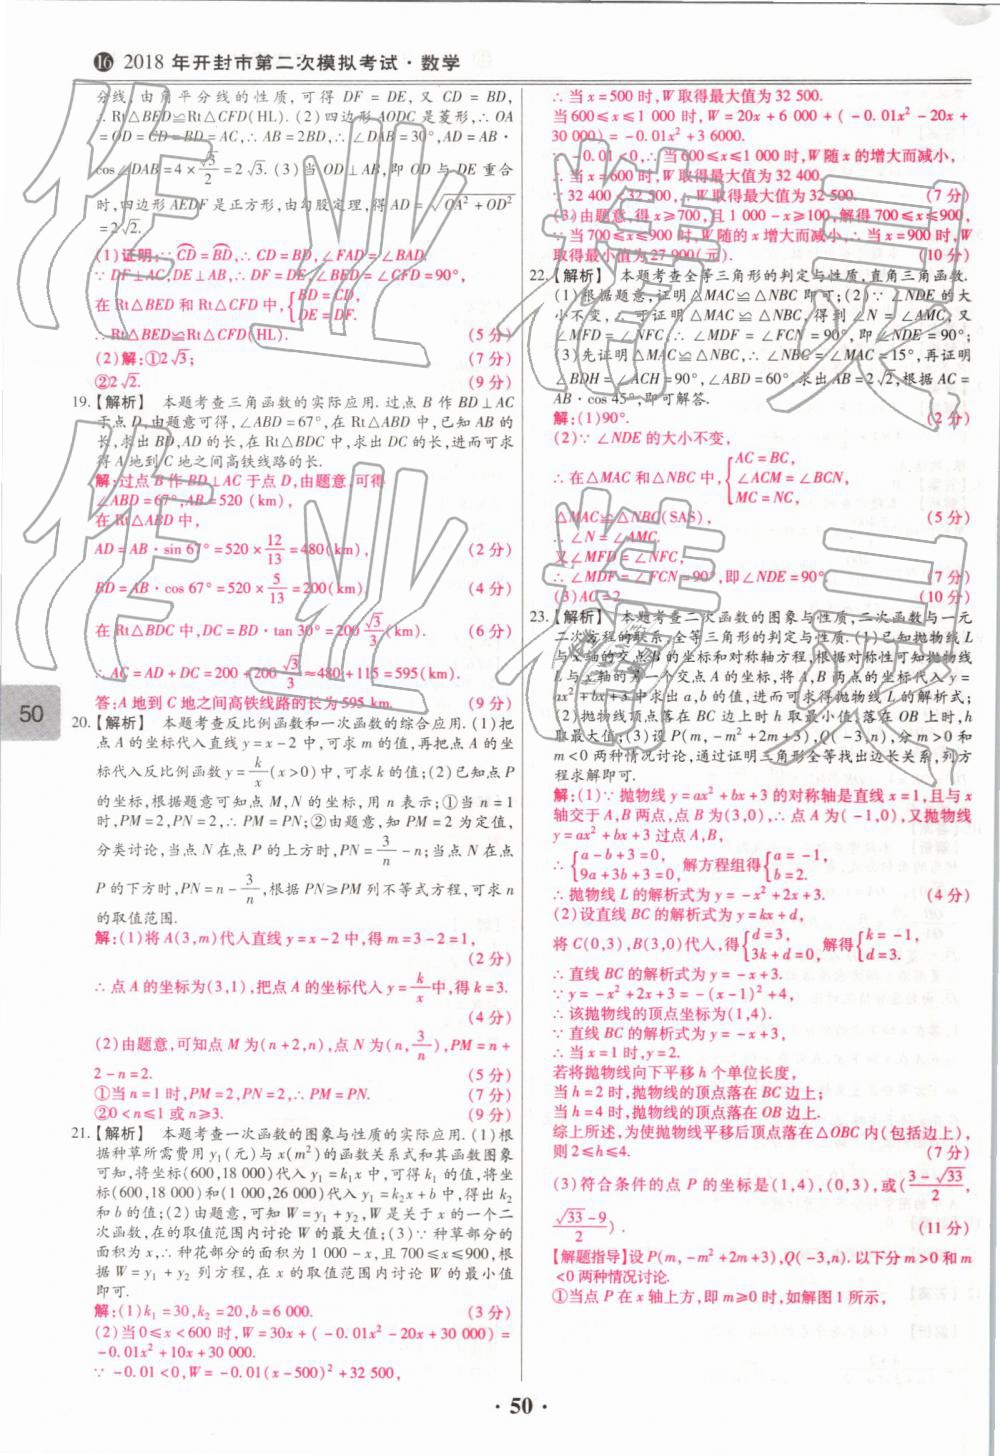 ⑯ 2018年开封市第二次模拟考试·数学
分线,由角平分线的性质,可得 DF = DE,又 CD = BD,
∴ Rt△BED≌Rt△CFD(HL).(2)四边形AODC是菱形,∴ OA
= OD = CD = BD = AC,∴ AB = 2BD,∴ ∠DAB = 30°,AD = AB·
cos∠DAB = 4 × √3/2 = 2√3.(3)当 OD⊥AB,即 OD 与 DE 重合
时,四边形 AEDF 是正方形,由勾股定理,得 AD = √(OA² + OD²)
= 2√2.
(1)证明:∵ CD = BD,∴ CD = BD,∠FAD = ∠BAD.
∵ DF⊥AC,DE⊥AB,∴ DF = DE,∠BED = ∠CFD = 90°,
在 Rt△BED 和 Rt△CFD 中,{BD = CD,
DE = DF.
∴ Rt△BED≌Rt△CFD(HL). (5分)
(2)解:①2√3; (7分)
②2√2. (9分)
19.【解析】 本题考查三角函数的实际应用.过点 B 作 BD⊥AC
于点 D.由题意可得,∠ABD = 67°,在 Rt△ABD 中,已知 AB 的
长,求出 BD,AD 的长,在 Rt△BDC 中,求出 DC 的长,进而可求
得 A 地到 C 地之间高铁线路的长.
解:过点 B 作 BD⊥AC 于点 D,由题意,可得
∠ABD = 67°,AB = 520(km),
在 Rt△ABD 中,
AD = AB·sin 67° = 520 × 12/13 = 480(km), (2分)
BD = AB·cos 67° = 520 × 5/13 = 200(km). (4分)
在 Rt△BDC 中,DC = BD·tan 30° = 200·√3/3(km). (6分)
∴ AC = AD + DC = 200 + 200·√3/3 ≈ 480 + 115 = 595(km).
答:A 地到 C 地之间高铁线路的长为 595 km. (9分)
20.【解析】 本题考查反比例函数和一次函数的综合应用.(1)把
点 A 的坐标代入直线 y = x - 2 中,可求 m 的值,再把点 A 的坐
标代入反比例函数 y = k/x(x > 0)中,可求 k 的值;(2)已知点 P
的坐标,根据题意可知点 M,N 的坐标,用 n 表示;①当 n = 1
时,PM = 2,PN = 2,∴ PM = PN;②由题意,知 PM = 2 为定值,
分类讨论,当点 N 在点 P 的上方时,PN = 3/n - n;当点 N 在点
P 的下方时,PN = n - 3/n,根据 PN≥PM 列不等式方程,可求 n
的取值范围.
解:(1)将 A(3,m)代入直线 y = x - 2 中,得 m = 3 - 2 = 1,
(2分)
∴ 点 A 的坐标为(3,1),把点 A 的坐标代入 y = k/x 中,得 k = 3.
(4分)
(2)由题意,可知点 M 为(n + 2,n),点 N 为(n,3/n),PM = n +
2 - n = 2. (5分)
①当 n = 1 时,PM = 2,PN = 2,∴ PM = PN. (7分)
②0 < n≤1 或 n≥3. (9分)
21.【解析】 本题考查一次函数的图象与性质的实际应用.(1)根
据种草所需费用 y₁(元)与 x(m²)的函数关系式和其函数图象
可知,将坐标(600,18 000)代入 y₁ = k₁x 中,可得 k₁ 的值,将坐
标(600,18 000)和(1 000,26 000)代入 y₁ = k₂x + b 中,得出 k₂
和 b 的值;(2)由题意,可知 W = y₁ + y₂,W 是关于 x 的一个二
次函数,在的取值范围内讨论 W 的最大值;(3)∵ 种草部分的
面积为 x,∴ 种花部分的面积为 1 000 - x,且 700≤x≤900,根
据 W = y₁ + y₂ 列方程,在 x 的取值范围内讨论 W 的最小值
即可.
解:(1)k₁ = 30,k₂ = 20,b = 6 000. (3分)
(2)当 0≤x < 600 时,W = 30x + ( - 0.01x² - 20x + 30 000) =
- 0.01x² + 10x + 30 000.
∵ - 0.01 < 0,W = - 0.01(x - 500)² + 32 500,
∴ 当 x = 500 时,W 取得最大值为 32 500.
当 600≤x≤1 000 时,W = 20x + 6 000 + ( - 0.01x² - 20x +
30 000) = - 0.01x² + 3 6000.
∵ - 0.01 < 0,∴ 当 600≤x≤1 000 时,W 随 x 的增大而减小,
∴ 当 x = 600 时,W 取得最大值为 32 400.
∵ 32 400 < 32 500,∴ W 取得最大值为 32 500. (7分)
(3)由题意,得 x≥700,且 1 000 - x≥100,解得 700≤x≤900,
∵ 当 700≤x≤900 时,W 随的 x 增大而减小,∴ 当 x = 900 时,W
取得最小值为 27 900(元). (10分)
22.【解析】 本题考查全等三角形的判定与性质,直角三角函数.
(1)根据题意,证明△MAC≌△NBC 即可;(2)∵ ∠NDE 的大
小不变,∴ 可证明△MAC≌△NBC,得到∠N = ∠AMC,又
∠MFD = ∠NFC,∴ ∠MDF = ∠FCN = 90°,即∠NDE = 90°;
(3)先证明△MAC≌△NBC,∴ ∠NBC = ∠MAC = 15°,再证明
∠BDH = ∠ACH = 90°,∠ABD = 60°,求出 AB = 2√2,根据 AC =
AB·cos 45°,即可解答.
解:(1)90°. (2分)
(2)∵ ∠NDE 的大小不变,
∴ 在△MAC 和△NBC 中,{AC = BC,
∠ACM = ∠BCN,
MC = NC,
△MAC≌△NBC(SAS), (5分)
∴ ∠N = ∠AMC.
又∠MFD = ∠NFC,
∴ ∠MDF = ∠FCN = 90°,即∠NDE = 90°. (7分)
(3)AC = 2. (10分)
23.【解析】 本题考查二次函数的图象与性质,二次函数与一元
二次方程的联系,全等三角形的判定与性质.(1)已知抛物线 L
与 x 轴的交点 B 的坐标和对称轴方程,根据对称性可知抛物线
L 与 x 轴的另一个交点 A 的坐标,将 A,B 两点的坐标代入 y =
ax² + bx + 3 中求出 a,b 的值,进而可求得抛物线 L 的解析式;
(2)抛物线顶点落在 BC 边上时 h 取最小值,落在 OB 上时,h
取最大值;(3)设 P(m, - m² + 2m + 3),Q( - 3,n),分 m > 0 和
m < 0 两种情况讨论,通过证明三角形全等找出边长关系,列方
程求解即可.
解:(1)∵ 抛物线 y = ax² + bx + 3 的对称轴是直线 x = 1,且与 x
轴交于 A,B 两点,点 B 为(3,0),∴ 点 A 为( - 1,0),又抛物线
y = ax² + bx + 3 过点 A,B,
∴ {a - b + 3 = 0, 9a + 3b + 3 = 0, 解方程组得{a = - 1, b = 2.
∴ 抛物线 L 的解析式为 y = - x² + 2x + 3. (4分)
(2)设直线 BC 的解析式为 y = kx + d,
将 C(0,3),B(3,0)代入,得{d = 3, 3k + d = 0, 解得{k = - 1, d = 3.
∴ 直线 BC 的解析式为 y = - x + 3.
∵ y = - x² + 2x + 3 = - (x - 1)² + 4,
∴ 该抛物线的顶点坐标为(1,4).
∵ 直线 BC 的解析式为 y = - x + 3,
∴ 当 x = 1 时,y = 2.
若将抛物线向下平移 h 个单位长度,
当 h = 2 时,抛物线的顶点落在 BC 边上;
当 h = 4 时,抛物线的顶点落在 OB 边上.
综上所述,为使抛物线平移后顶点落在△OBC 内(包括边上),
则 2≤h≤4. (7分)
(3)符合条件的点 P 的坐标是(1,4),(0,3),或((3 - √33)/2,
(√33 - 9)/2). (11分)
【解题指导】设 P(m, - m² + 2m + 3),Q( - 3,n).以下分 m > 0 和 m
< 0 两种情况讨论.
①当点 P 在 x 轴上方,即 m≥0 时,如解图 1 所示,
50
· 50 ·
作业精灵
作业精灵